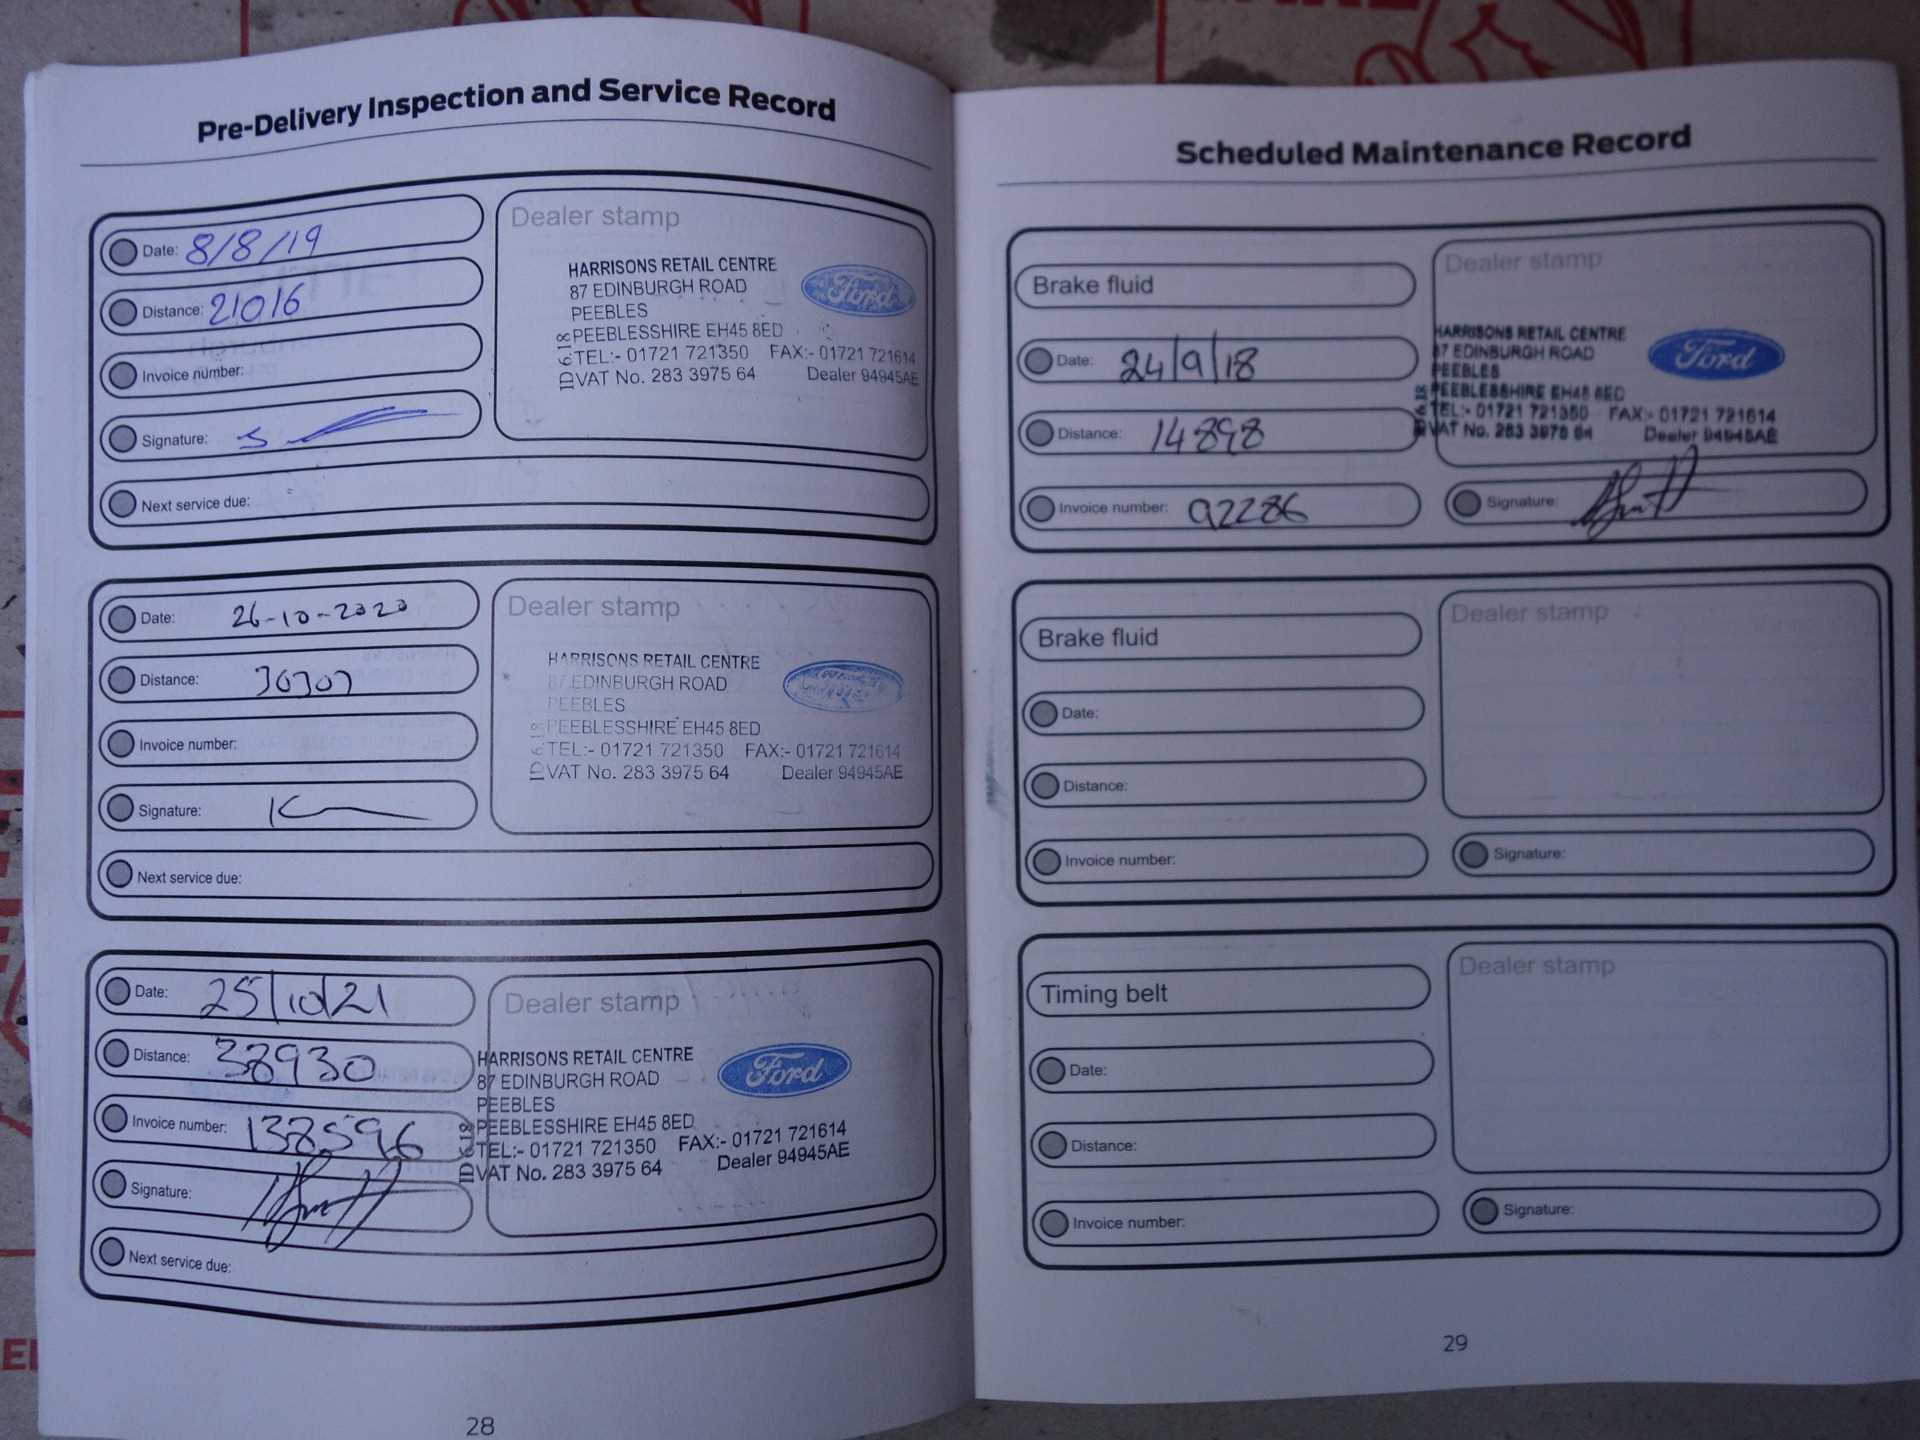 Pre-Delivery Inspection and Service Record
Date: 8/8/19
Distance: 21016
Invoice number:
Signature:
Next service due:
Dealer stamp
HARRISONS RETAIL CENTRE
87 EDINBURGH ROAD
PEEBLES
PEEBLESSHIRE EH45 8ED
TEL:- 01721 721350 FAX:- 01721 721614
VAT No. 283 3975 64 Dealer 94945AE
Ford
Date: 26-10-2020
Distance: 30307
Invoice number:
Signature:
Next service due:
Dealer stamp
HARRISONS RETAIL CENTRE
87 EDINBURGH ROAD
PEEBLES
PEEBLESSHIRE EH45 8ED
TEL:- 01721 721350 FAX:- 01721 721614
VAT No. 283 3975 64 Dealer 94945AE
Date: 25/10/21
Distance: 38930
Invoice number: 138596
Signature:
Next service due:
Dealer stamp
HARRISONS RETAIL CENTRE
87 EDINBURGH ROAD
PEEBLES
PEEBLESSHIRE EH45 8ED
TEL:- 01721 721350 FAX:- 01721 721614
VAT No. 283 3975 64 Dealer 94945AE
Ford
28
Scheduled Maintenance Record
Brake fluid
Date: 24/9/18
Distance: 14898
Invoice number: 92286
Dealer stamp
HARRISONS RETAIL CENTRE
87 EDINBURGH ROAD
PEEBLES
PEEBLESSHIRE EH45 8ED
TEL:- 01721 721350 FAX:- 01721 721614
VAT No. 283 3975 64 Dealer 94945AE
Ford
Signature:
Brake fluid
Date:
Distance:
Invoice number:
Dealer stamp
Signature:
Timing belt
Date:
Distance:
Invoice number:
Dealer stamp
Signature:
29